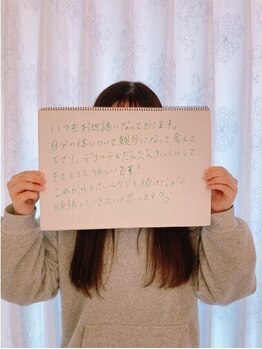 いつもお世話になっております。
自分の体について親身になって考えて
下さり、デコルテもだんだんふっくらして
きてとてもうれしいです!
これからもホームケアを続けながら
頑張っていきたいと思います